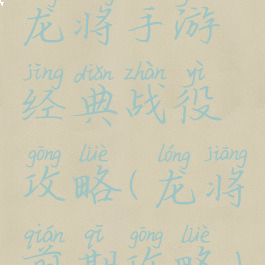 龙将手游
jīng diǎn zhàn yì
经典战役
gōng lüè lóng jiāng
攻略(龙将
qián qī gōng lüè
前期攻略)